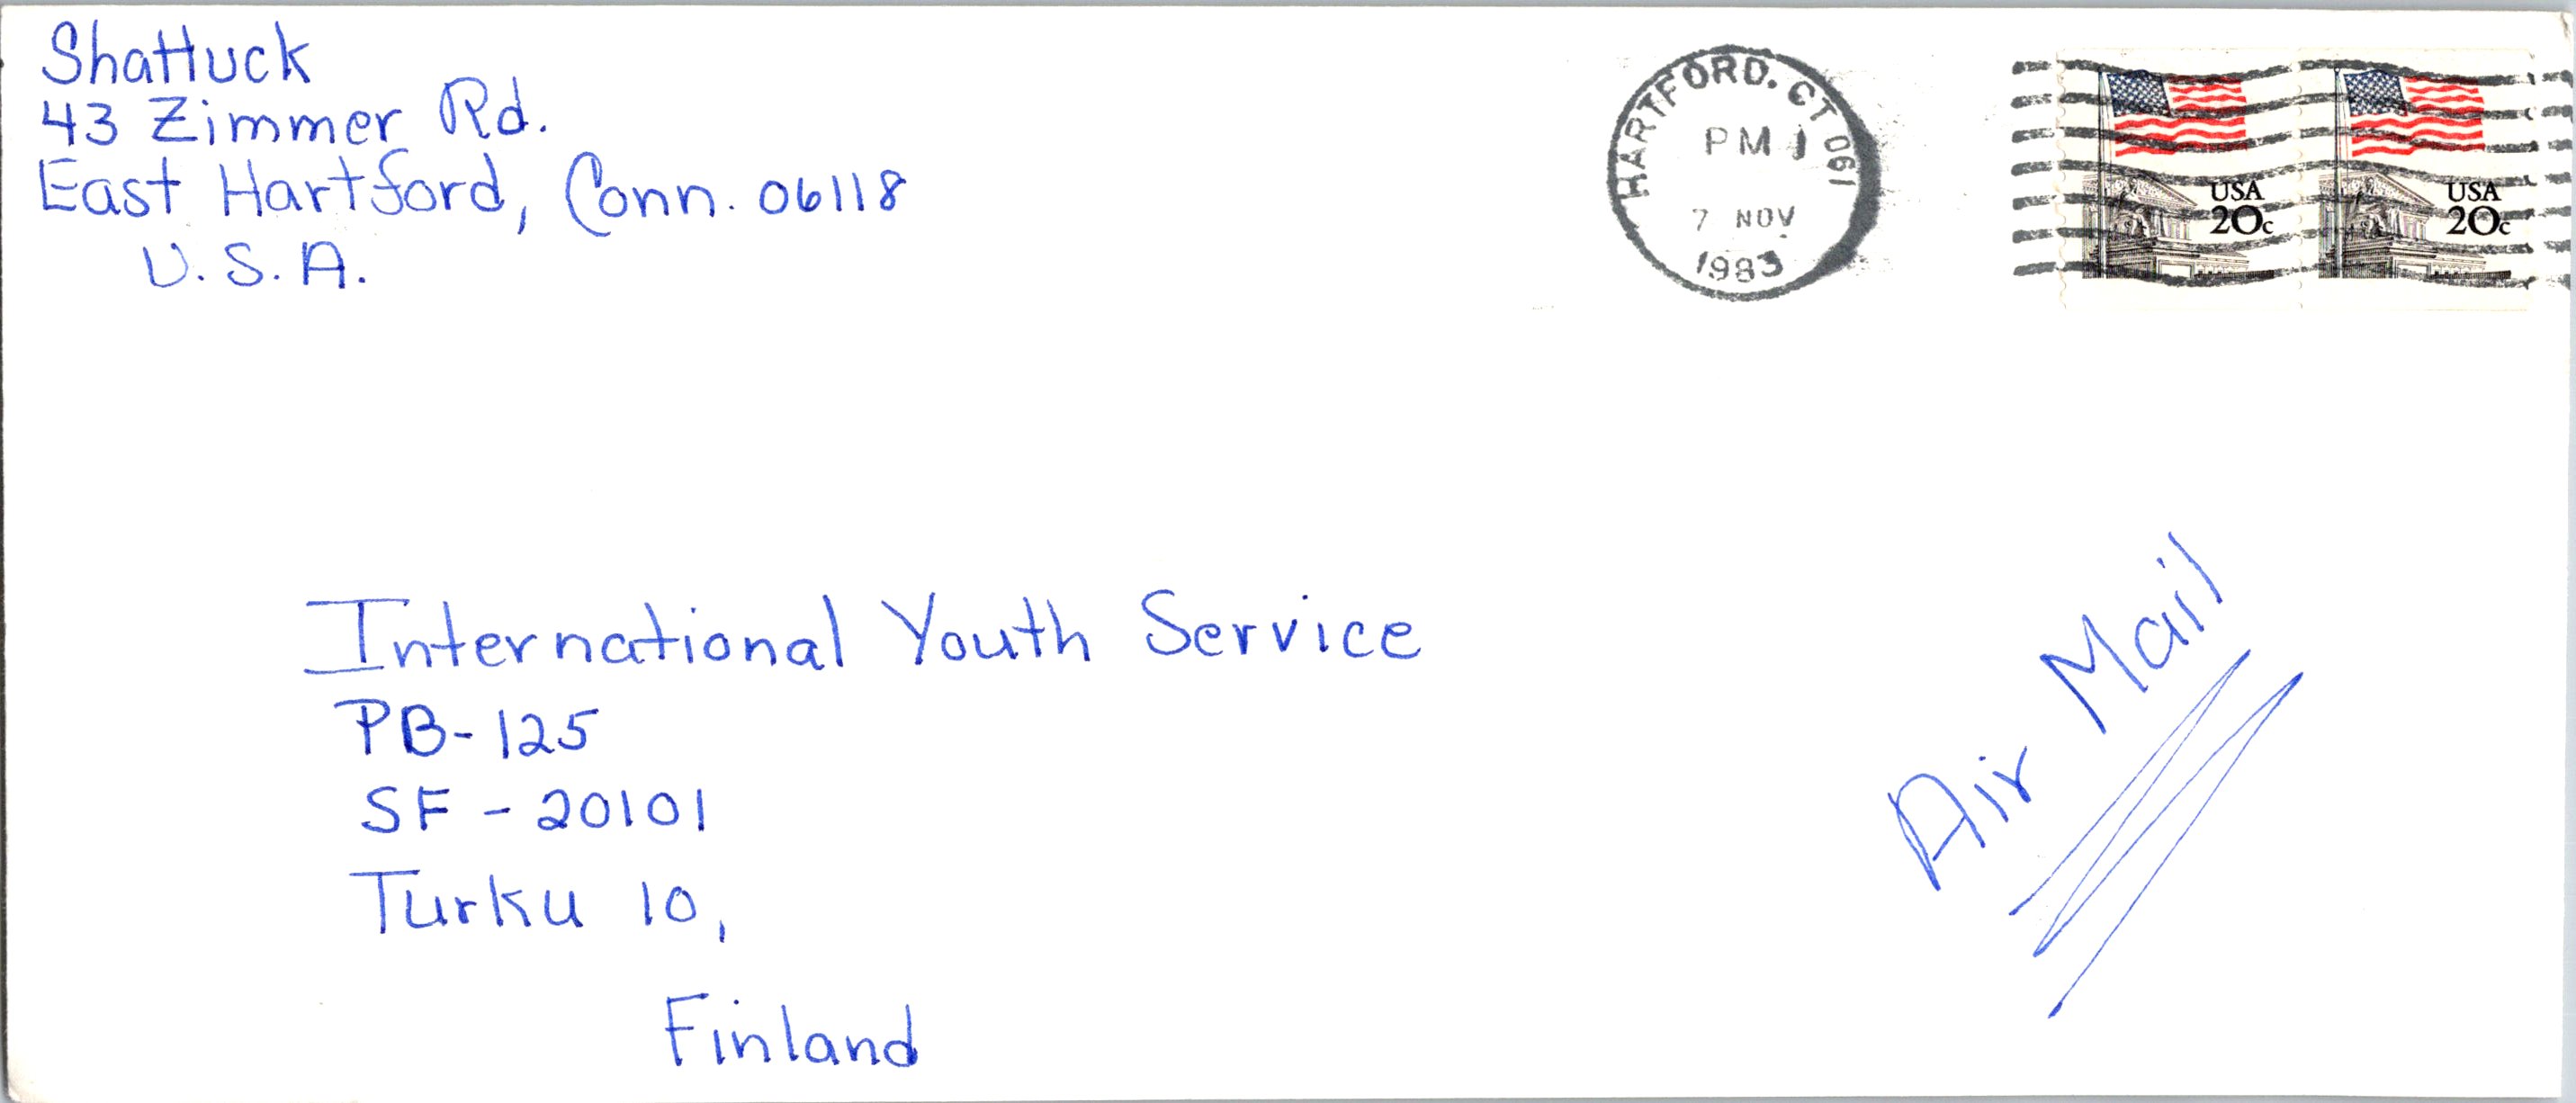 Shattuck
43 Zimmer Rd.
East Hartford, Conn. 06118
U.S.A.
HARTFORD. CT 061
PM 1
7 NOV
1983
USA
20c
USA
20c
International Youth Service
PB-125
SF - 20101
Turku 10,
Finland
Air Mail